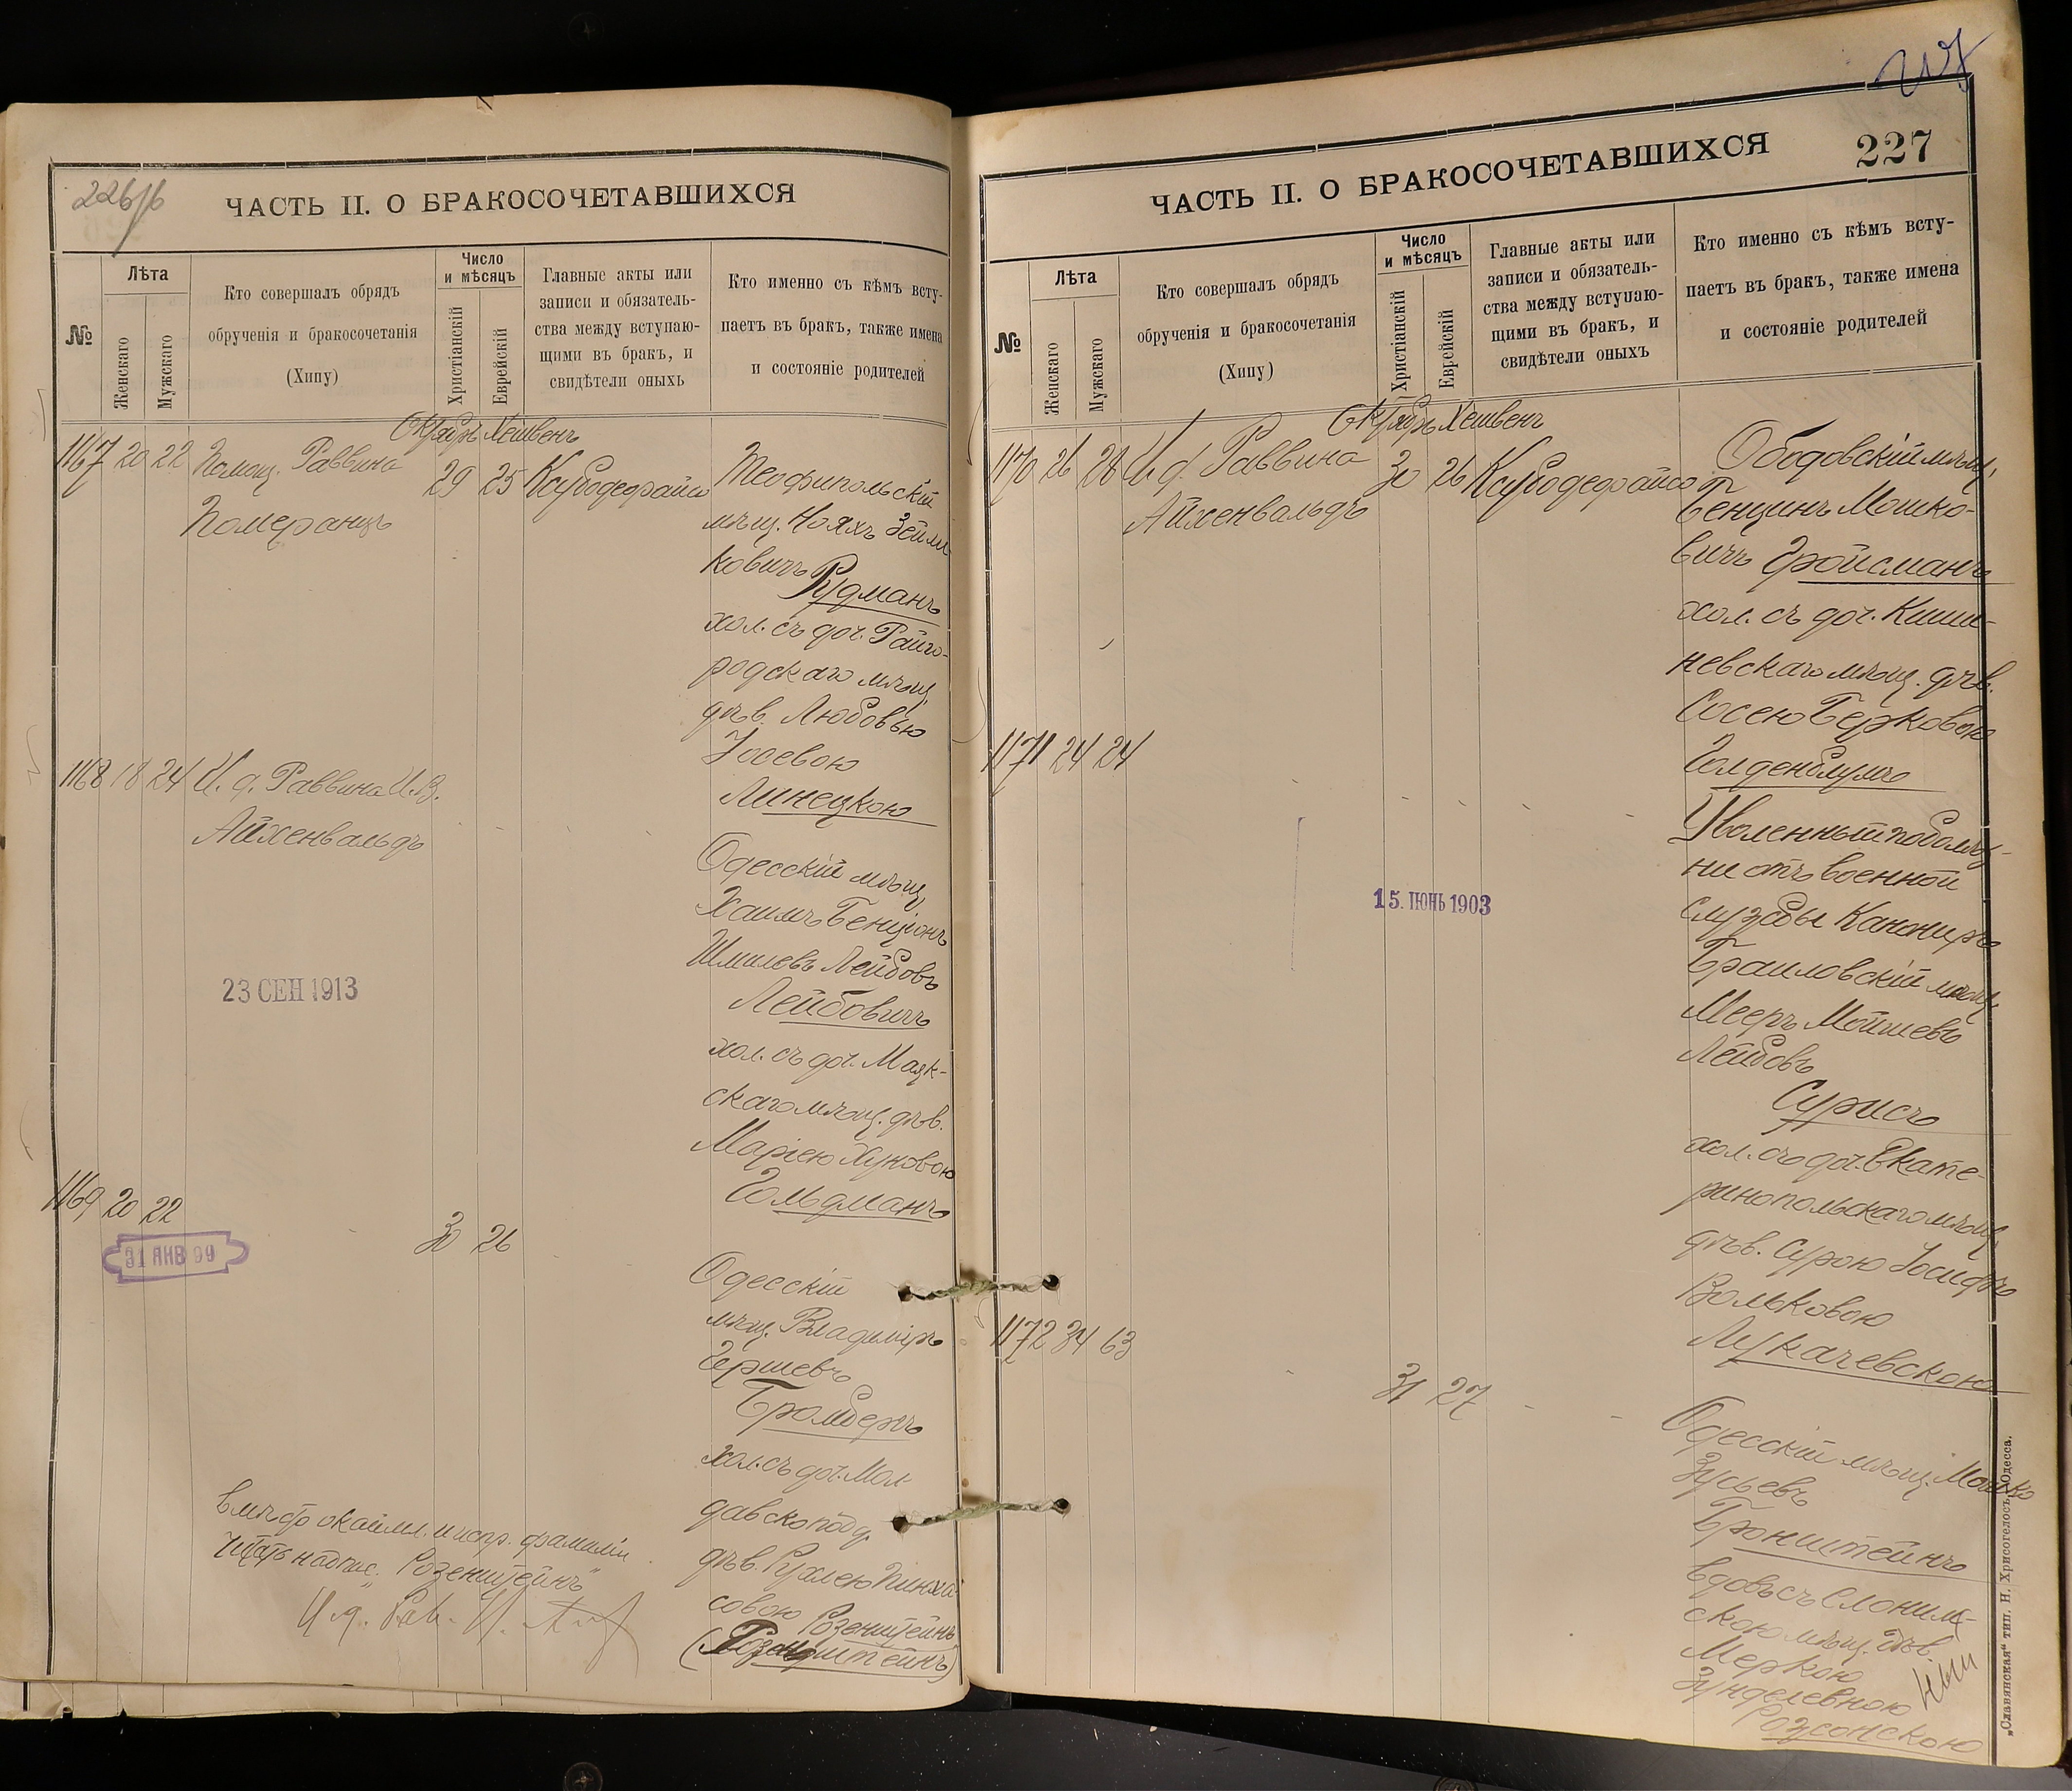 226/б
ЧАСТЬ II. О БРАКОСОЧЕТАВШИХСЯ
№
Лѣта
Женскаго
Мужскаго
Кто совершалъ обрядъ
обрученія и бракосочетанія
(Хипу)
Число
и мѣсяцъ
Христіанскій
Еврейскій
Главные акты или
записи и обязатель-
ства между вступаю-
щими въ бракъ, и
свидѣтели оныхъ
Кто именно съ кѣмъ всту-
паетъ въ бракъ, также имена
и состояніе родителей
Октябрь Хешвенъ
1167 20 22 Помощ. Раввина 29 25
Померанцъ
Теофипольскій
мѣщ. Нояхъ Зейли-
ковичъ Рудманъ
хол. съ доч. Райго-
родскаго мѣщ.
дѣв. Любовью
Іосевою
Линецкою
1168 18 24 И. д. Раввина И.В.
Айхенвальдъ
Одесскій мѣщ.
Хаимъ Бенціонъ
Шмилевъ Лейбовъ
Лейбовичъ
хол. съ доч. Маяк-
скаго мѣщ. дѣв.
Маріею Хуновою
Гольдманъ
23 СЕН 1913
1169 20 22 30 26
31 ЯНВ 99
Одесскій
мѣщ. Владиміръ
Гершевъ
Бромбергъ
хол. съ доч. Мол
давскопод.
дѣв. Рухлею Пинха-
совою Розенштейнъ
(Розенштейнъ)
фамиліи
надпис. "Розенштейнъ"
И. д. Рав.
227
ЧАСТЬ II. О БРАКОСОЧЕТАВШИХСЯ
№
Лѣта
Женскаго
Мужскаго
Кто совершалъ обрядъ
обрученія и бракосочетанія
(Хипу)
Число
и мѣсяцъ
Христіанскій
Еврейскій
Главные акты или
записи и обязатель-
ства между вступаю-
щими въ бракъ, и
свидѣтели оныхъ
Кто именно съ кѣмъ всту-
паетъ въ бракъ, также имена
и состояніе родителей
Октябрь Хешвенъ
1170 26 28 И. д. Раввина 30 26
Айхенвальдъ
Ободовскій мѣщ.
Бенцинъ Мошко-
вичъ Гройсманъ
хол. съ доч. Киши-
невскаго мѣщ. дѣв.
Сосею Берковою
Голденблумъ
1171 24 24
Уволенный по болѣз-
ни отъ военной
службы Канониръ
Браиловскій мѣщ.
Мееръ Мойшевъ
Лейбовъ
Сурисъ
хол. съ доч. Екате-
ринопольскаго мѣщ.
дѣв. Сурою Іосифъ
Вольковою
Лукачевскою
15. ІЮНЬ 1903
1172 34 63 31 27
Одесскій мѣщ. Мошко
Зусьевъ
Бронштейнъ
вдов. съ Слоним-
скою мѣщ. дѣв.
Меркою
Зунделевною
„Славянская“ тип. Н. Хрисогелосъ, Одесса.